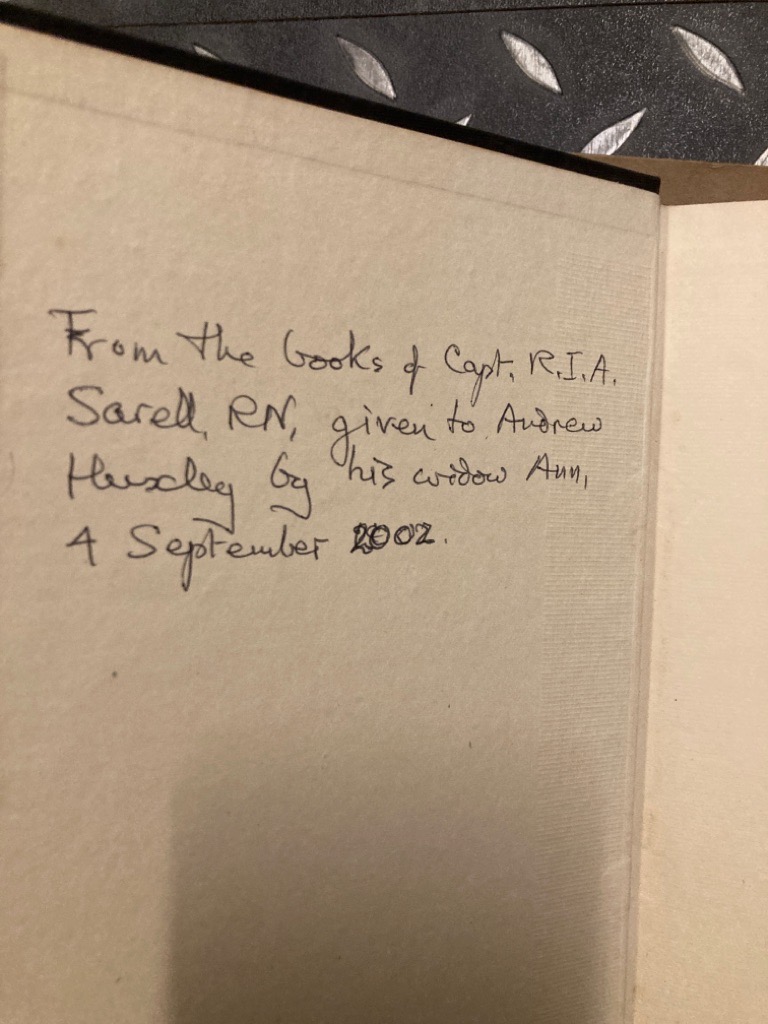 From the books of Capt. R.I.A.
Sarell, RN, given to Andrew
Huxley by his widow Ann,
4 September 2002.